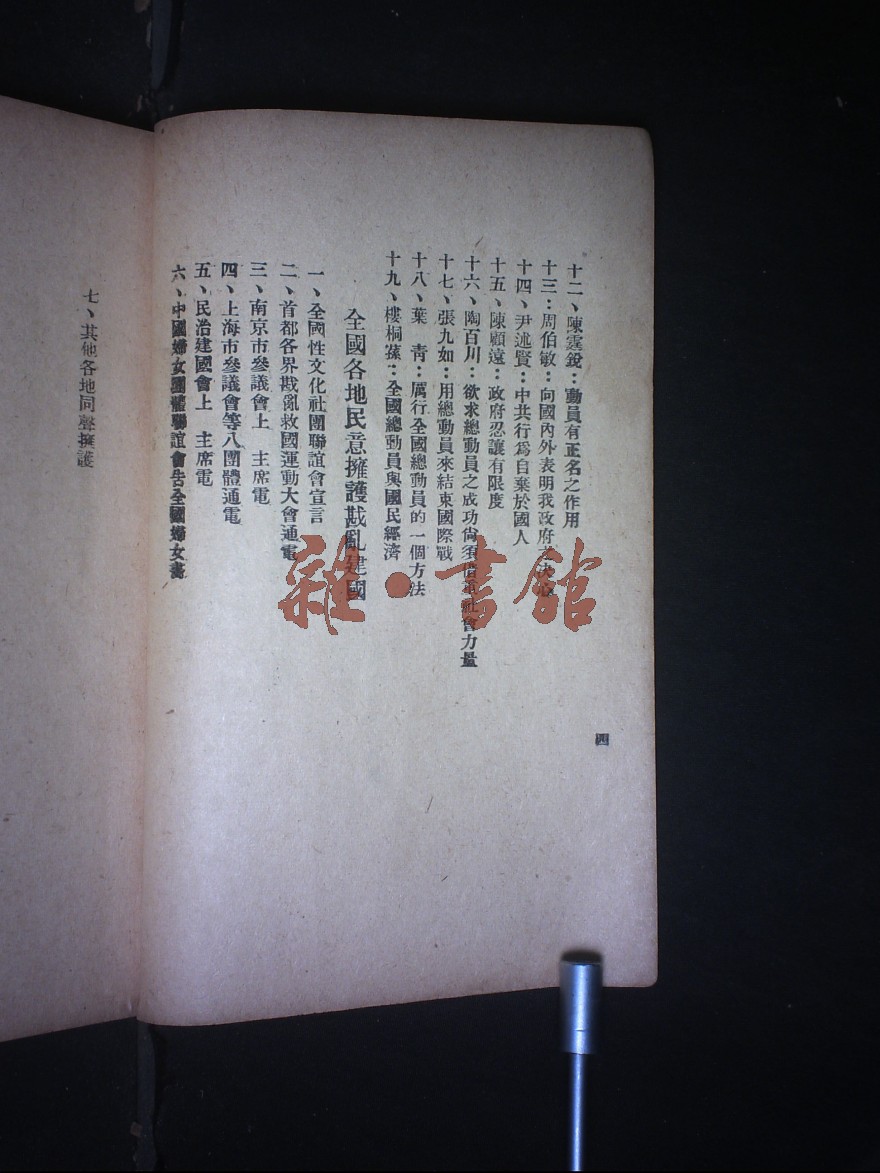 十二、陳霆銳：動員有正名之作用
十三：周伯敏：向國內外表明我政府之決心
十四、尹述賢：中共行爲自棄於國人
十五、陳顧遠：政府忍讓有限度
十六、陶百川：欲求總動員之成功尙須借重社會力量
十七、張九如：用總動員來結束國際戰
十八、葉　靑：厲行全國總動員的一個方法
十九、樓桐蓀：全國總動員與國民經濟
全國各地民意擁護戡亂建國
一、全國性文化社團聯誼會宣言
二、首都各界戡亂救國運動大會通電
三、南京市參議會上　主席電
四、上海市參議會等八團體通電
五、民治建國會上　主席電
六、中國婦女團體聯誼會告全國婦女書
七、其他各地同聲擁護
四
雜·書館